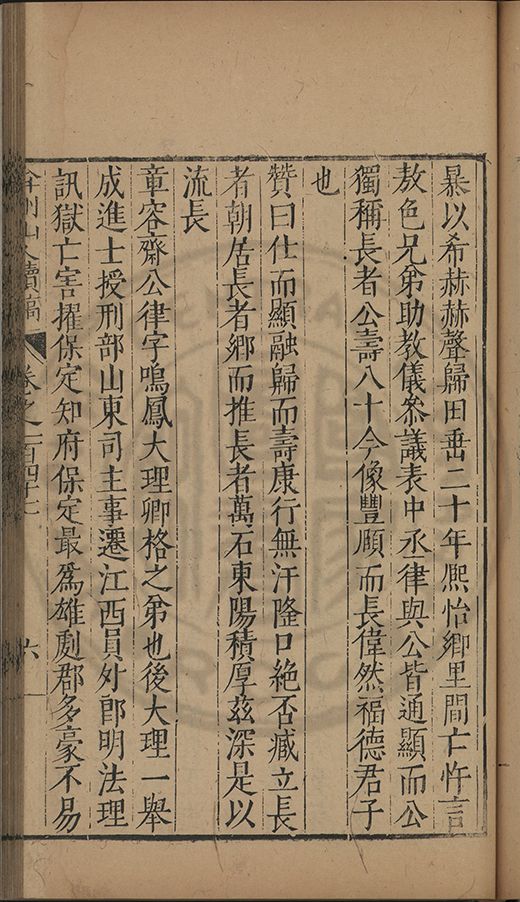 暴以希赫赫聲歸田垂二十年熈怡鄉里間亡忤言
敖色兄弟助教儀叅議表中丞律與公皆通顯而公
獨稱長者公壽八十今像豐頎而長偉然福德君子
也
贊曰仕而顯融歸而壽康行無汗隆口絶否臧立長
者朝居長者鄉而推長者萬石東陽積厚茲深是以
流長
章容齋公律字鳴鳳大理卿格之弟也後大理一舉
成進士授刑部山東司主事遷江西員外郎明法理
訊獄亡害擢保定知府保定最爲雄劇郡多豪不易
弇州山人續稿 卷之一百四十 六